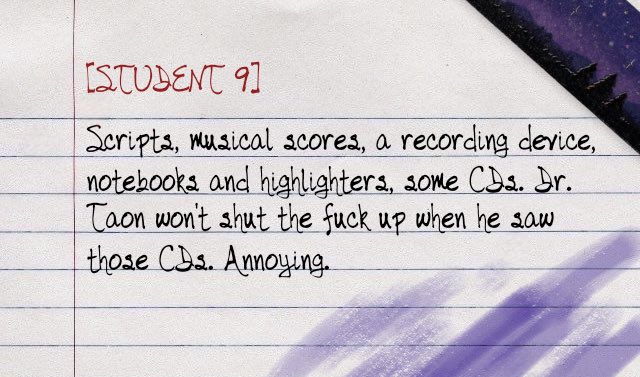 [STUDENT 9]
Scripts, musical scores, a recording device,
notebooks and highlighters, some CDs. Dr.
Taon won't shut the fuck up when he saw
those CDs. Annoying.